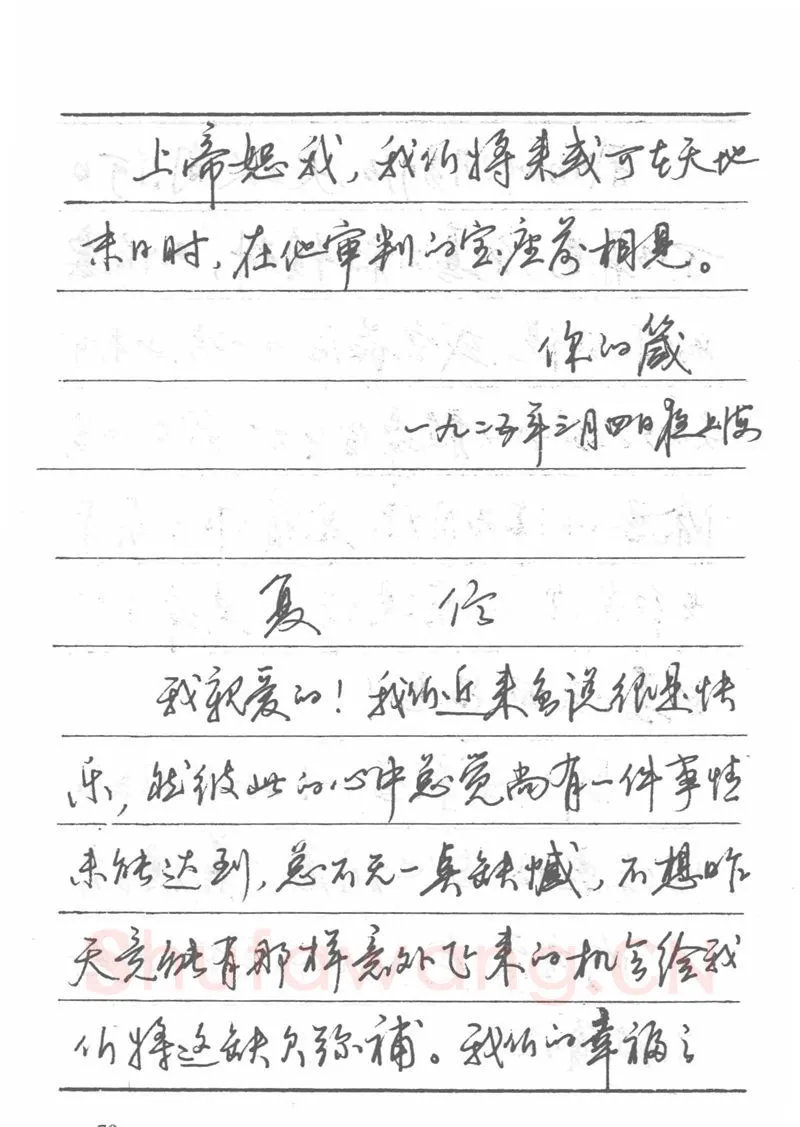 上帝恕我，我们将来或可在天地
末日时，在他审判的宝座前相见。
你的箴
一九二五年三月四日在上海
复 信
我亲爱的！我们近来虽说很是快
乐，然彼此的心中总觉尚有一件事情
未能达到，总不无一点缺憾，不想昨
天竟能有那样意外飞来的机会给我
们将这缺欠弥补。我们的幸福之
Shufawang.CN